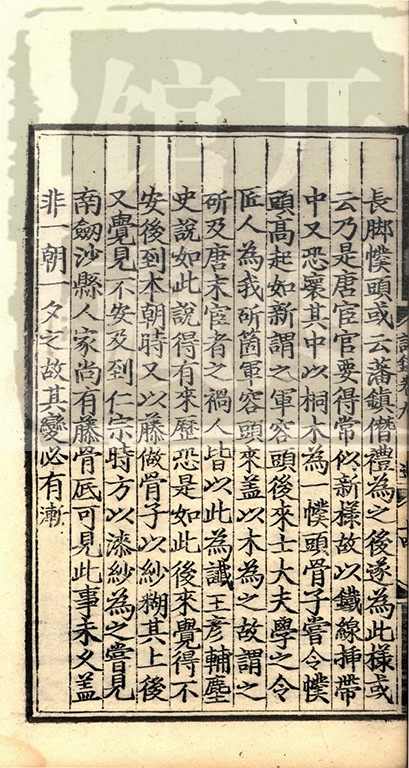 長脚幞頭或云藩鎮僣禮為之後遂為此様或
云乃是唐宦官要得常似新様故以鐵線挿帶
中又恐壊其中以桐木為一幞頭骨子嘗令幞
頭髙起如新謂之軍容頭後來士大夫學之令
匠人為我斫箇軍容頭來盖以木為之故謂之
斫及唐末宦者之禍人皆以此為讖王彦輔塵
史說如此說得有來歷恐是如此後來覺得不
安後到本朝時又以藤做骨子以紗糊其上後
又覺見不安及到仁宗時方以漆紗為之嘗見
南劔沙縣人家尚有藤骨底可見此事未久盖
非一朝一夕之故其變必有漸